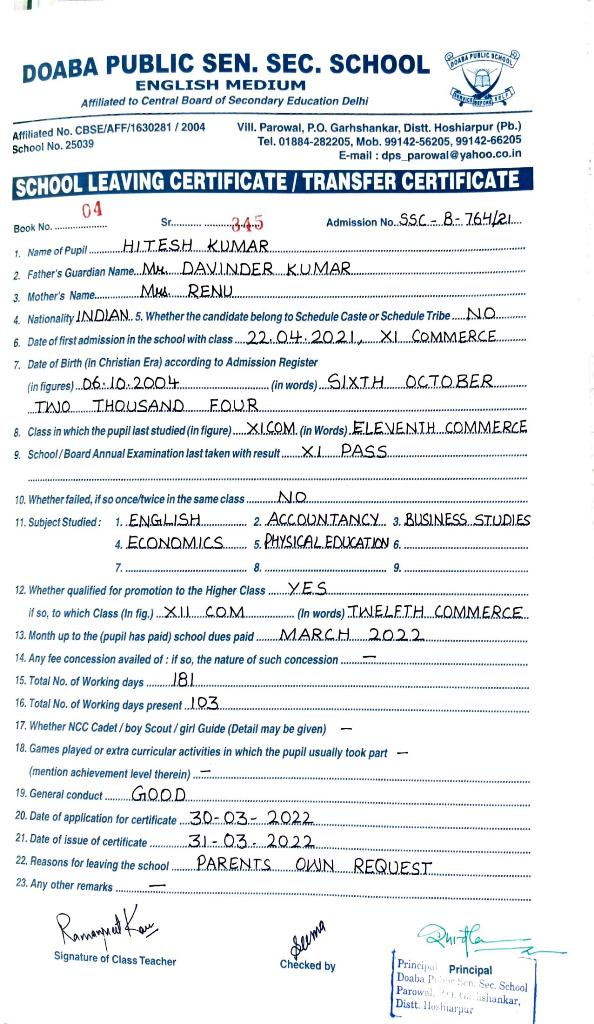 DOABA PUBLIC SEN. SEC. SCHOOL
ENGLISH MEDIUM
Affiliated to Central Board of Secondary Education Delhi
DOABA PUBLIC SCHOOL
SERVICE BEFORE SELF
Affiliated No. CBSE/AFF/1630281 / 2004
School No. 25039
Vill. Parowal, P.O. Garhshankar, Distt. Hoshiarpur (Pb.)
Tel. 01884-282205, Mob. 99142-56205, 99142-66205
E-mail : dps_parowal@yahoo.co.in
SCHOOL LEAVING CERTIFICATE / TRANSFER CERTIFICATE
Book No. 04 Sr. 345 Admission No. SSC-B-764/21
1. Name of Pupil HITESH KUMAR
2. Father's Guardian Name Mr. DAVINDER KUMAR
3. Mother's Name Mrs. RENU
4. Nationality INDIAN 5. Whether the candidate belong to Schedule Caste or Schedule Tribe NO
6. Date of first admission in the school with class 22.04.2021, XI COMMERCE
7. Date of Birth (in Christian Era) according to Admission Register
(in figures) 06.10.2004 (in words) SIXTH OCTOBER
TWO THOUSAND FOUR
8. Class in which the pupil last studied (in figure) XI COM (in Words) ELEVENTH COMMERCE
9. School / Board Annual Examination last taken with result XI PASS
10. Whether failed, if so once/twice in the same class NO
11. Subject Studied : 1. ENGLISH 2. ACCOUNTANCY 3. BUSINESS STUDIES
4. ECONOMICS 5. PHYSICAL EDUCATION 6.
7. 8. 9.
12. Whether qualified for promotion to the Higher Class YES
if so, to which Class (In fig.) XII COM (In words) TWELFTH COMMERCE
13. Month up to the (pupil has paid) school dues paid MARCH 2022
14. Any fee concession availed of : if so, the nature of such concession —
15. Total No. of Working days 181
16. Total No. of Working days present 103
17. Whether NCC Cadet / boy Scout / girl Guide (Detail may be given) —
18. Games played or extra curricular activities in which the pupil usually took part —
(mention achievement level therein) —
19. General conduct GOOD
20. Date of application for certificate 30-03-2022
21. Date of issue of certificate 31-03-2022
22. Reasons for leaving the school PARENTS OWN REQUEST
23. Any other remarks —
Ramanpreet Kaur
Seema
Signature of Class Teacher
Checked by
Principal
Principal
Doaba Public Sen. Sec. School
Parowal, P.O. Garhshankar,
Distt. Hoshiarpur